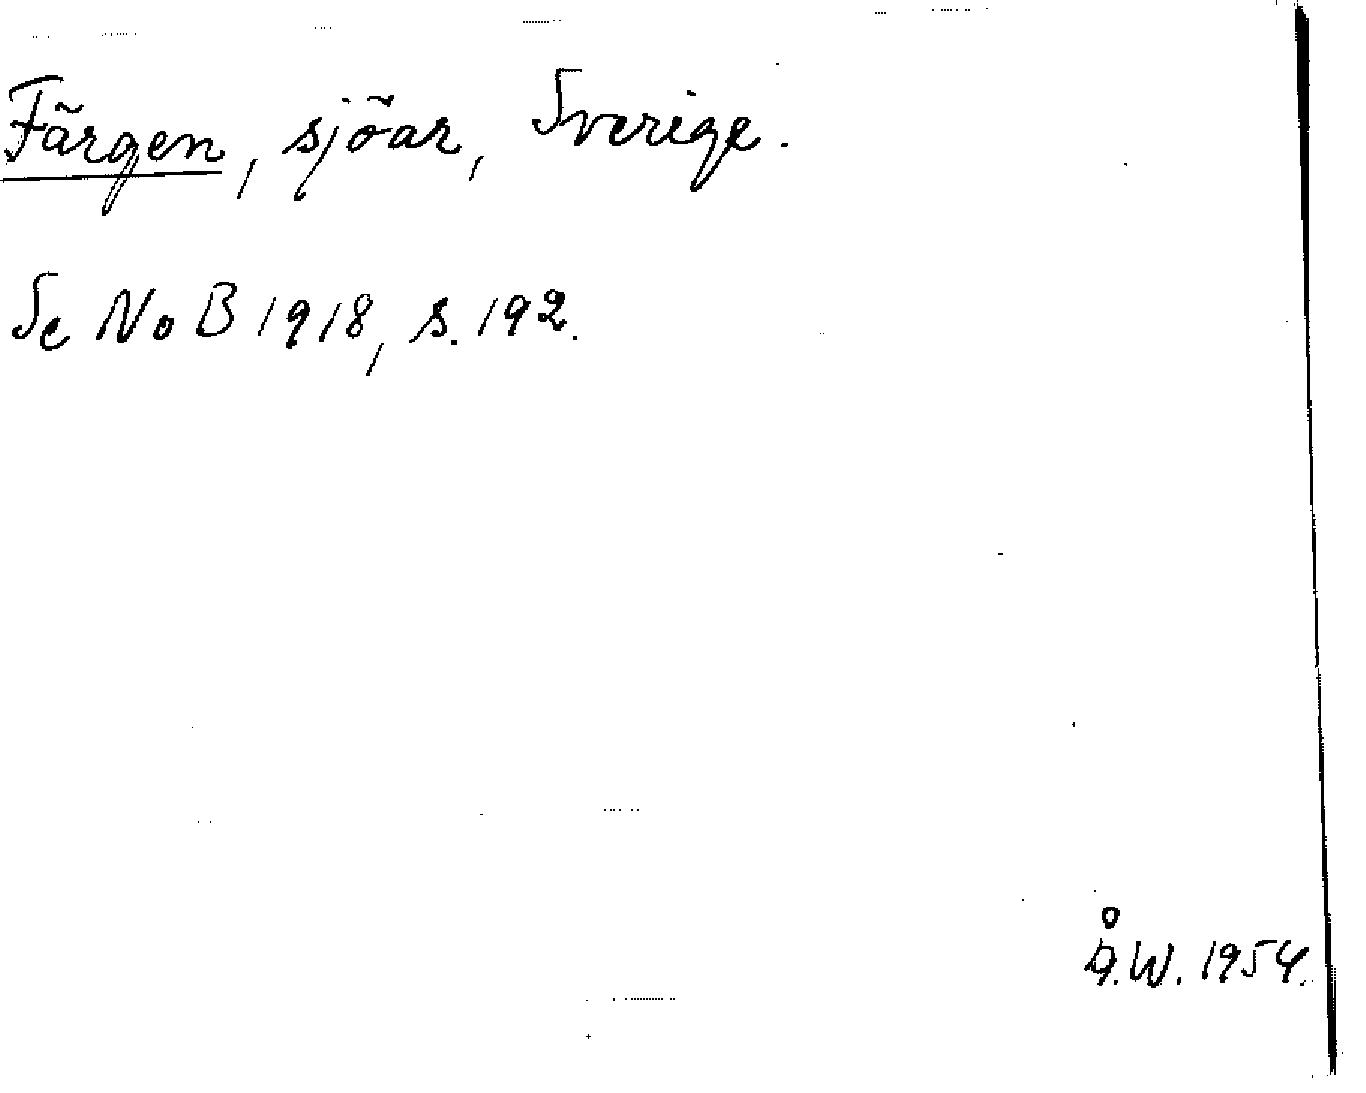 Färgen, sjöar, Sverige.
Se NoB 1918, s. 192.
Å.W. 1954.